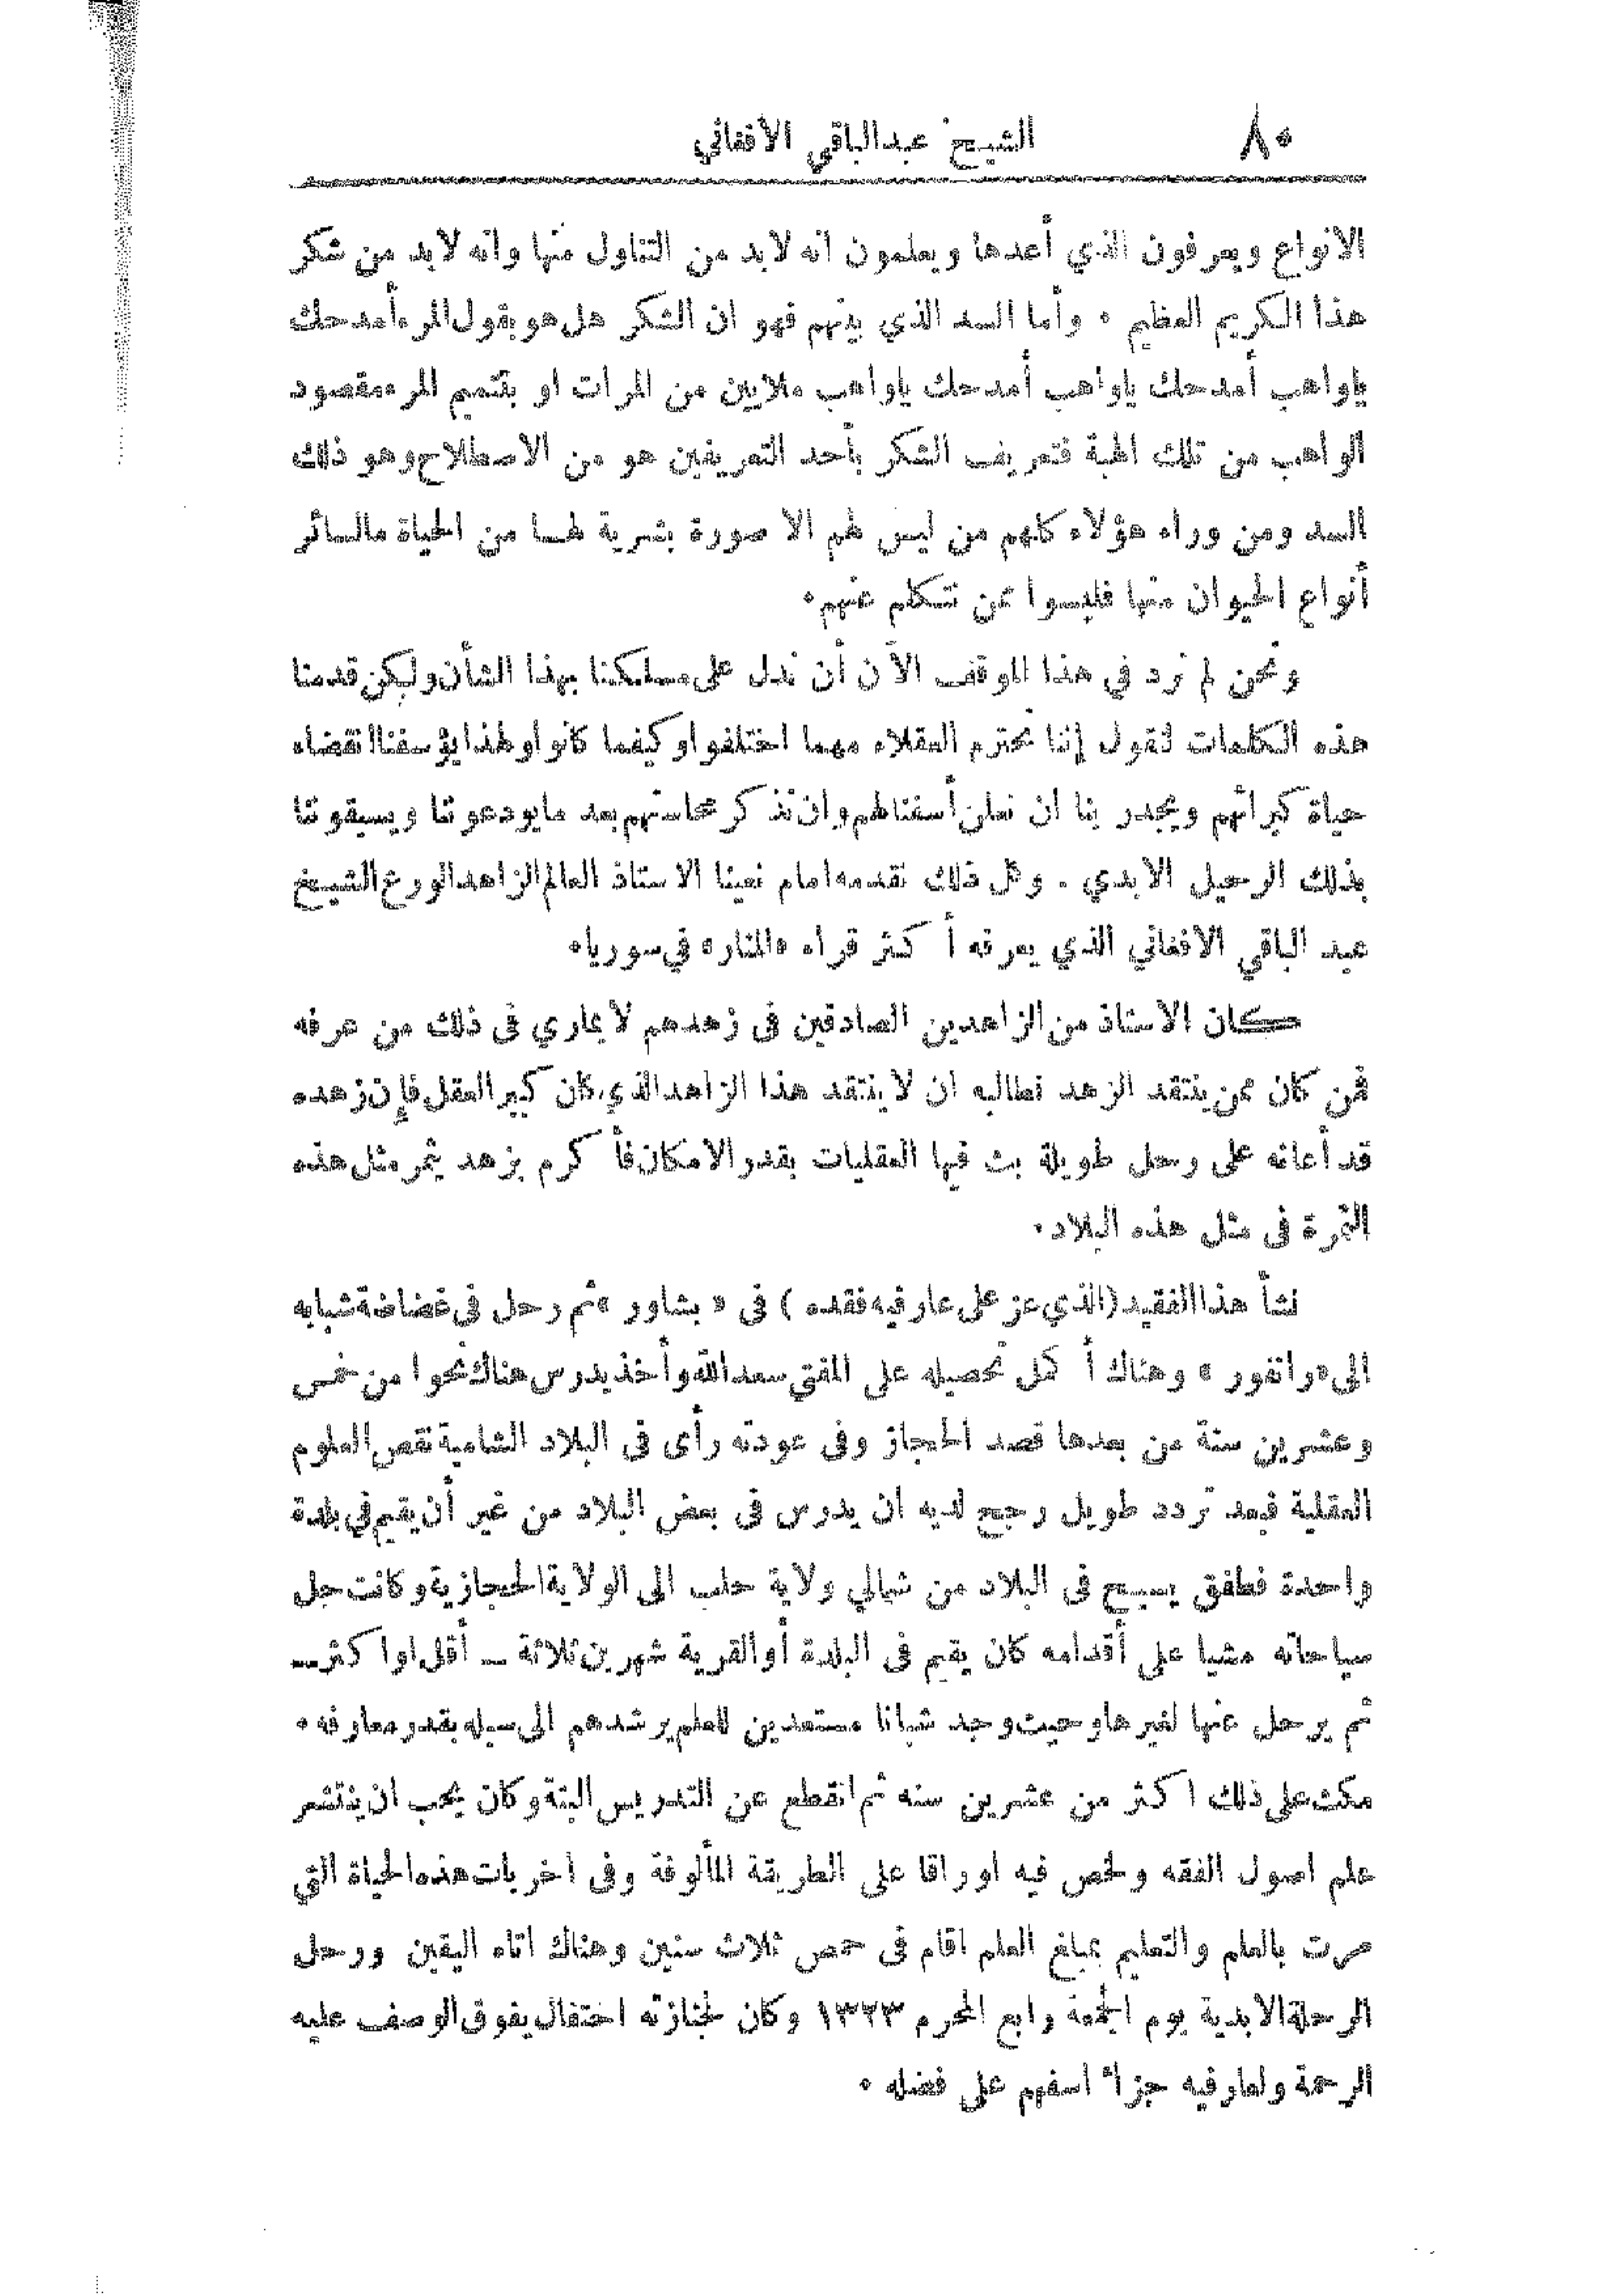 ٨٠ الشيخ عبدالباقي الافغاني
الانواع ويعرفون الذي أعدها ويعلمون انه لابد من التناول منها وانه لابد من شكر
هذا الكريم العظيم ٠ وأما السد الذي بينهم فهو ان الشكر هل هو بقول المرء أمدحك
ياواهب أمدحك ياواهب أمدحك ياواهب ملايين من المرات او بتتميم المرء مقصود
الواهب من تلك الهبة فتعريف الشكر بأحد التعريفين هو من الاصطلاح وهو ذلك
السد ومن وراء هؤلاء كلهم من ليس لهم الا صورة بشرية لها من الحياة مالسائر
أنواع الحيوان منها فليسوا عمن نتكلم عنهم٠
ونحن لم نرد في هذا الموقف الآن أن ندل على مسلكنا بهذا الشأن ولكن قدمنا
هذه الكلمات لنقول إننا نحترم العقلاء مهما اختلفوا وكيفما كانوا ولهذا يؤسفنا انقضاء
حياة كبرائهم ويجدر بنا ان نعلن أسفنا لهم وان نذكر محاسنهم بعد مايودعوننا ويسبقوننا
بذلك الرحيل الابدي . وكل ذلك نقدمه امام نعينا الاستاذ العالم الزاهد الورع الشيخ
عبد الباقي الافغاني الذي يعرفه أكثر قراء «المنار» في سوريا٠
كان الاستاذ من الزاهدين الصادقين فى زهدهم لايماري فى ذلك من عرفه
فمن كان ممن ينتقد الزهد نطالبه ان لا ينتقد هذا الزاهد الذي كان كبير العقل فإن زهده
قد أعانه على رحل طويلة بث فيها العقليات بقدر الامكان فأكرم بزهد يثمر مثل هذه
الثمرة فى مثل هذه البلاد٠
نشأ هذا الفقيد (الذي عز على عارفيه فقده) فى «بشاور» ثم رحل فى غضاضة شبابه
الى «رانفور» وهناك أكمل تحصيله على المفتي سعد الله وأخذ يدرس هناك نحوا من خمس
وعشرين سنة من بعدها قصد الحجاز وفى عودته رأى فى البلاد الشامية نقص العلوم
العقلية فبعد تردد طويل رجح لديه ان يدرس فى بعض البلاد من غير أن يقيم في بلدة
واحدة فطفق يسيح فى البلاد من شمالي ولاية حلب الى الولاية الحجازية وكانت جل
سياحاته مشيا على أقدامه كان يقيم فى البلدة أو القرية شهرين ثلاثة ــ أقل او اكثر ــ
ثم يرحل عنها لغيرها وحيث وجد شبانا مستعدين للعلم يرشدهم الى سبله بقدر معارفه ٠
مكث على ذلك اكثر من عشرين سنه ثم انقطع عن التدريس البتة وكان يحب ان ينتشر
علم اصول الفقه ولخص فيه اوراقا على الطريقة المألوفة وفى اخريات هذه الحياة التي
مرت بالعلم والتعليم بمبلغ العلم اقام فى حمص ثلاث سنين وهناك اتاه اليقين ورحل
الرحلة الابدية يوم الجمعة رابع المحرم ١٣٢٣ وكان لجنازته احتفال يفوق الوصف عليه
الرحمة ولعارفيه جزاء اسفهم على فضله ٠